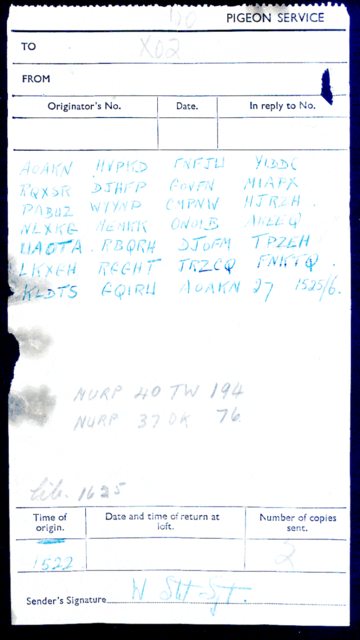 PIGEON SERVICE
TO X02
FROM
Originator's No. Date. In reply to No.
AOAKN HVPKD FNFJU YIDDC
RQXSR DJHFP GOVFN MIAPX
PABUZ WYYNP CMPNW HJRZH
NLXKG MEMKK ONOIB AKEEQ
UAOTA RBQRH DJOFM TPZEH
LKXGH RGGHT JRZCQ FNKTQ
KLDTS GQIRU AOAKN 27 1525/6.
NURP 40 TW 194
NURP 37 DK 76
lib. 1625
Time of origin. Date and time of return at loft. Number of copies sent.
1522 2
Sender's Signature W Stt Sjt.